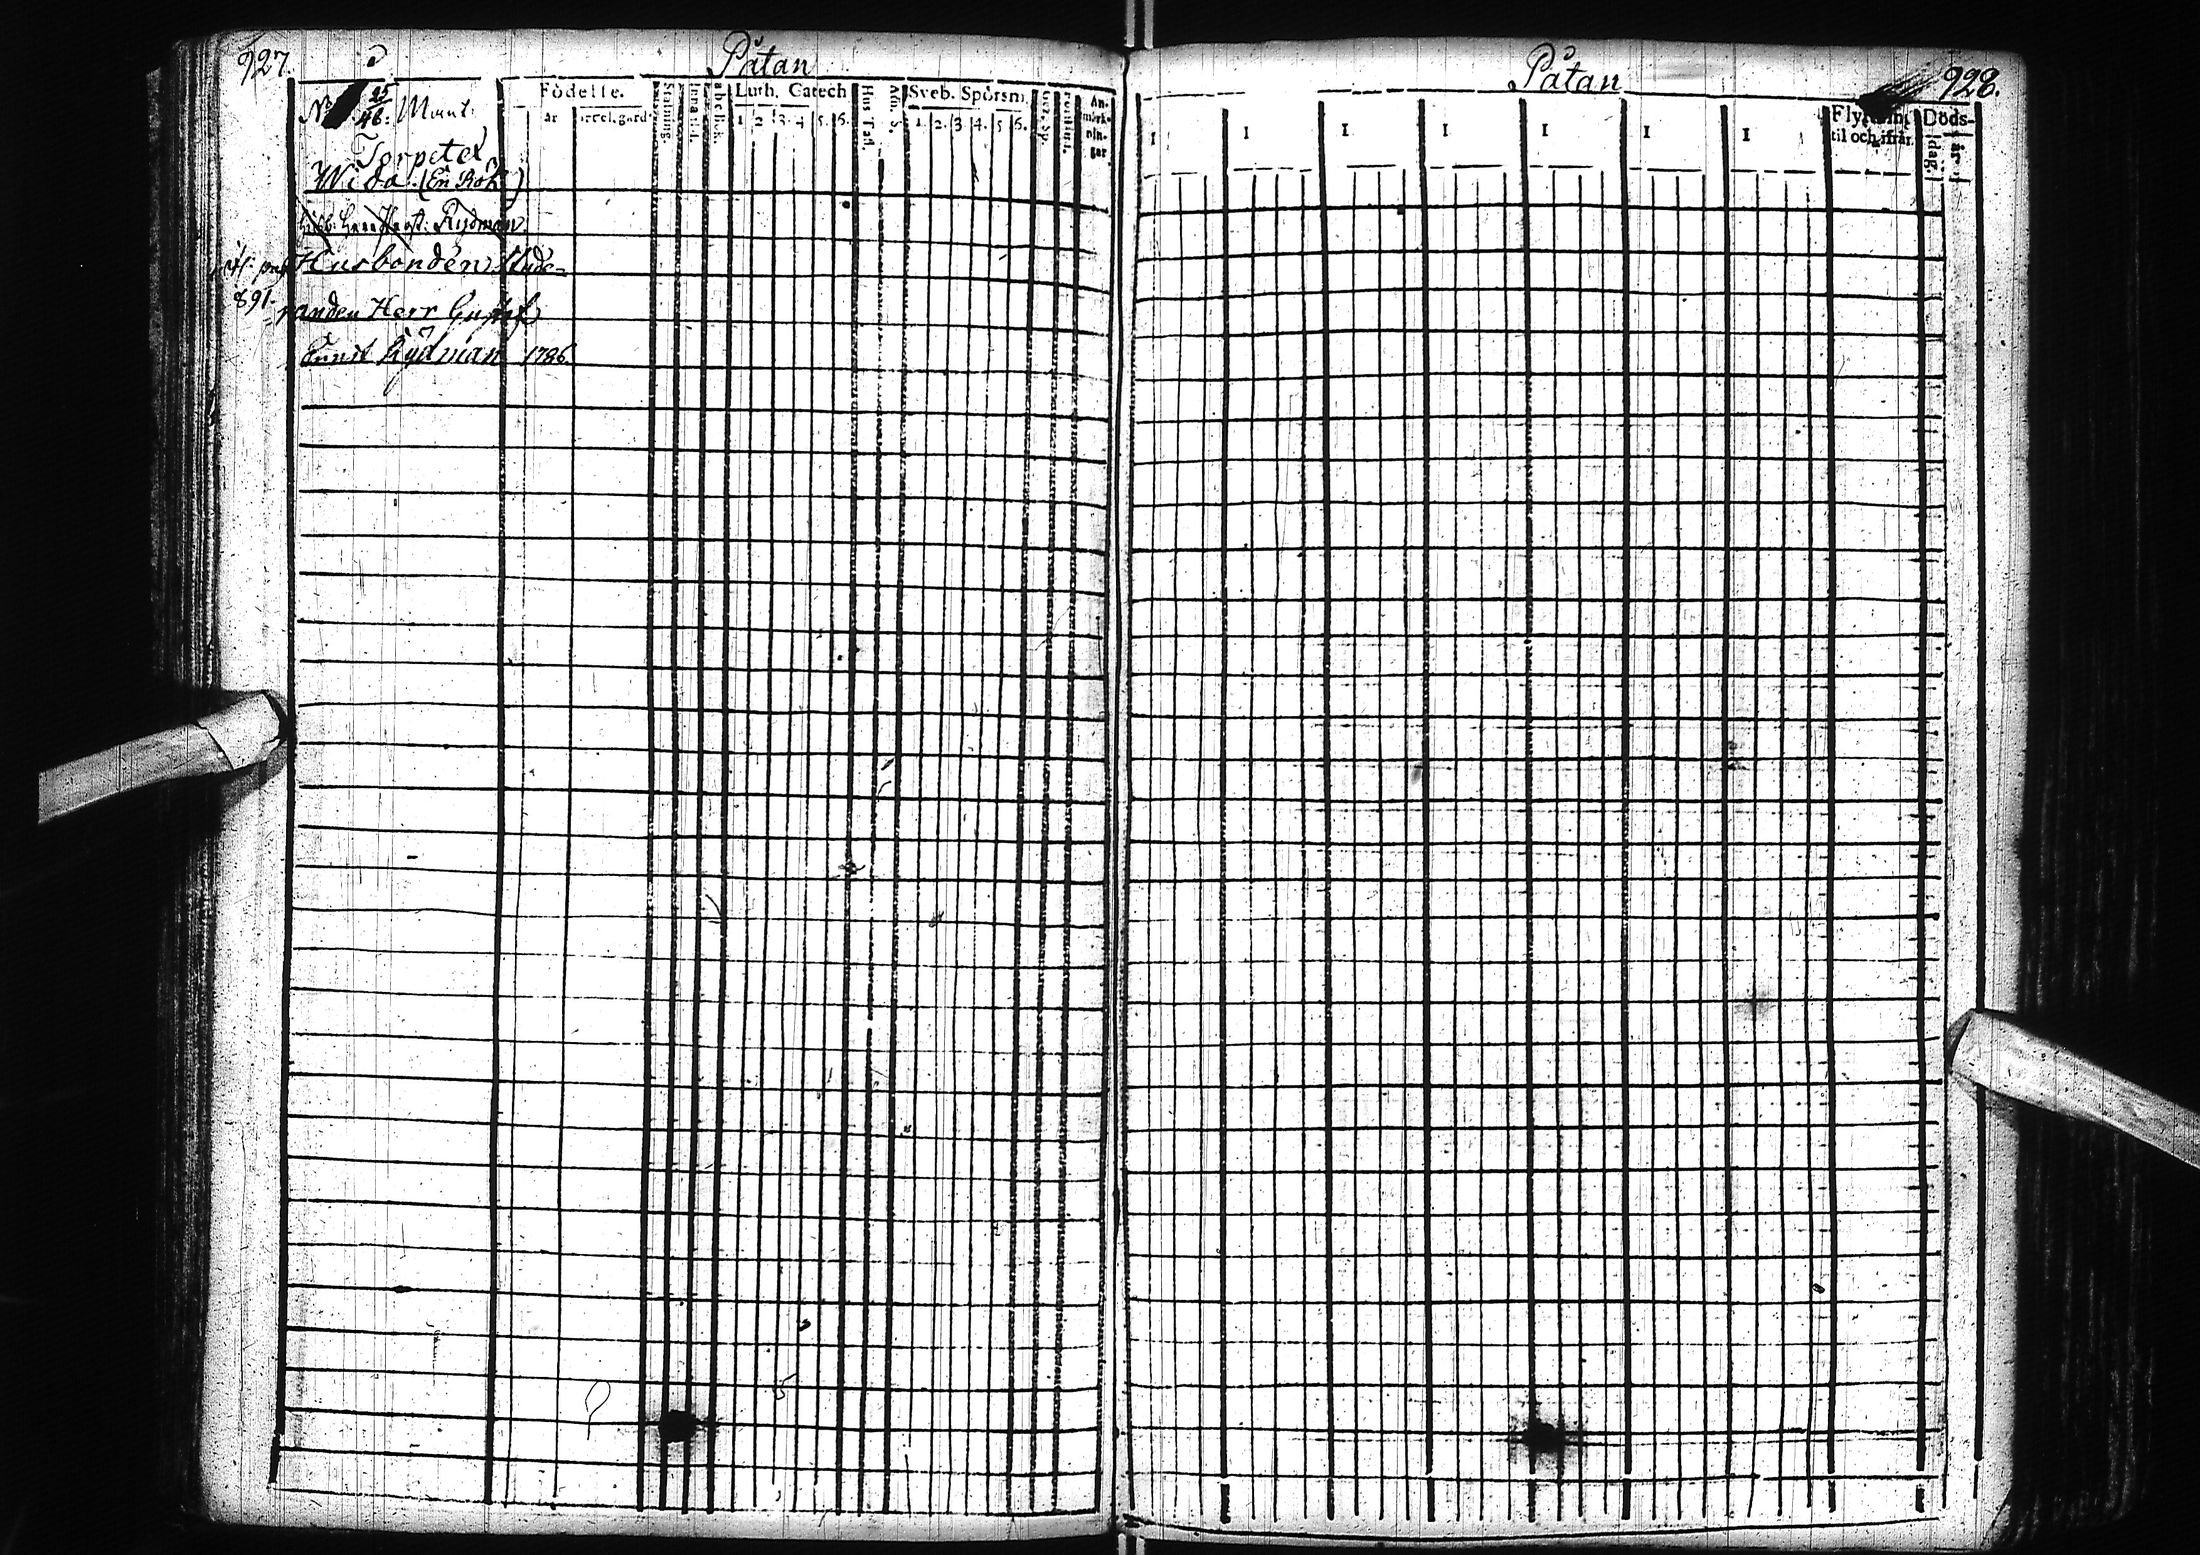 927.
Påtan
No 25/46: Mant:
Torpetet
Wida. (En Rök)
Rydman
Husbonden, Stude-
891.
randen Herr Gustaf
Rydman 1786
Födelse.
år
Luth. Catech
1 2 3 4 5. 6.
Hus Tafl.
Ath. S.
Sveb. Spörsm.
1. 2. 3 4. 5 6.
An-
märk-
nin-
gar
Påtan
928.
1 1 1 1 1 1 1
Flyttning
til och ifrån
Döds-
dag.
år.